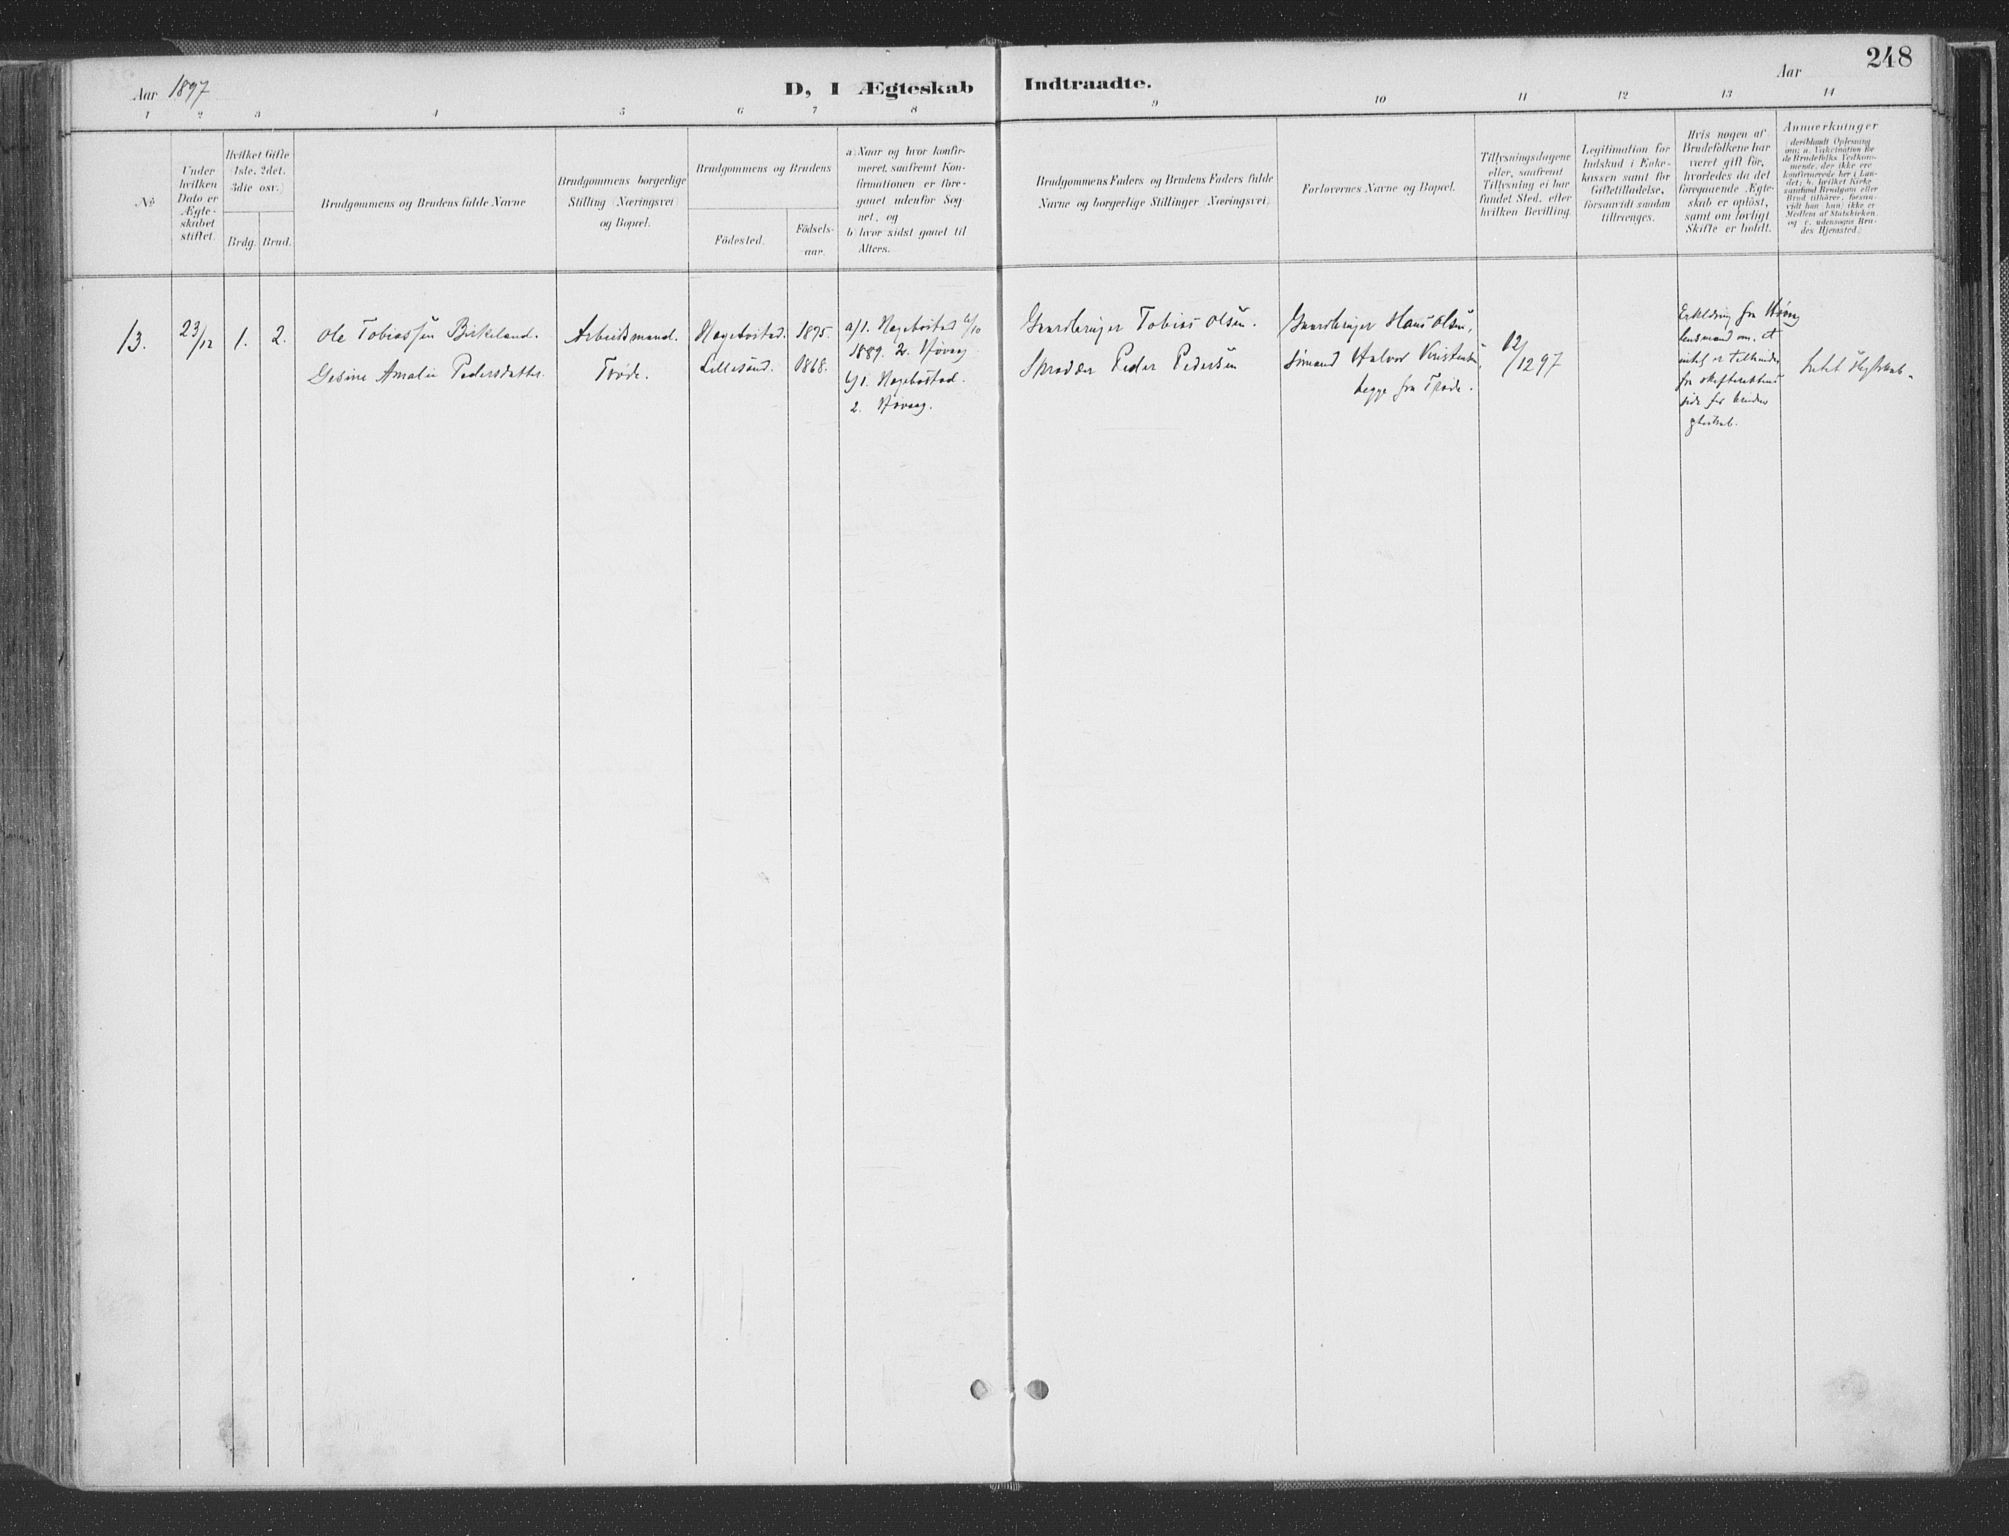 248
Aar 1897
D, I Ægteskab Indtraadte.
Aar
1 2 3 4 5 6 7 8 9 10 11 12 13 14
No
Under
hvilken
Dato er
Ægte-
skabet
stiftet.
Hvilket Gifte
(1ste, 2det,
3die osv.)
Brdg. Brud.
Brudgommens og Brudens fulde Navne
Brudgommens borgerlige
Stilling (Næringsvei)
og Bopæl.
Brudgommens og Brudens
Födested.
Födsels-
aar.
a) Naar og hvor konfir-
meret, saafremt Kon-
firmationen er fore-
gaaet udenfor Sog-
net, og
b) hvor sidst gaaet til
Alters.
Brudgommens Faders og Brudens Faders fulde
Navne og borgerlige Stillinger (Næringsvei).
Forlovernes Navne og Bopæl.
Tillysningsdagene
eller, saafremt
Tillysning ei har
fundet Sted, efter
hvilken Bevilling.
Legitimation for
Indskud i Enke-
kassen samt for
Giftetilladelse,
forsaavidt saadan
tiltrænges.
Hvis nogen af
Brudefolkene har
været gift för,
hvorledes da det
foregaaende Ægte-
skab er oplöst,
samt om lovligt
Skifte er holdt.
Anmærkninger
deriblandt Oplysning
om: a. Vakcination for
de Brudefolks Vedkom-
mende, der ikke ere
konfirmerede her i Lan-
det; b. hvilket Kirke-
samfund Brudgom eller
Brud tilhörer, forsaa-
vidt han (hun) ikke er
Medlem af Statskirken,
og c. udensogns Bru-
des Hjemsted.
13. 23/12 1. 2. Ole Tobiassen Birkeland. Arbeidsmand. Hægebostad. 1875. a/1. Hægebostad /10
Gesine Amalie Pedersdatter. Trøde. Lillesand. 1868. 1889. 2. Høvaag
b/1. Hægebostad.
2. Høvaag.
Gaardbruger Tobias Olsen.
Skrædder Peder Pedersen
Gaardbruger Hans Olsen,
Sømand Halvor Kristensen,
begge fra Trøde.
12/12 97
Erklæring fra
lensmand om, at
intet er
fra skifterettens
side for bruden
Intet Slegtskab.